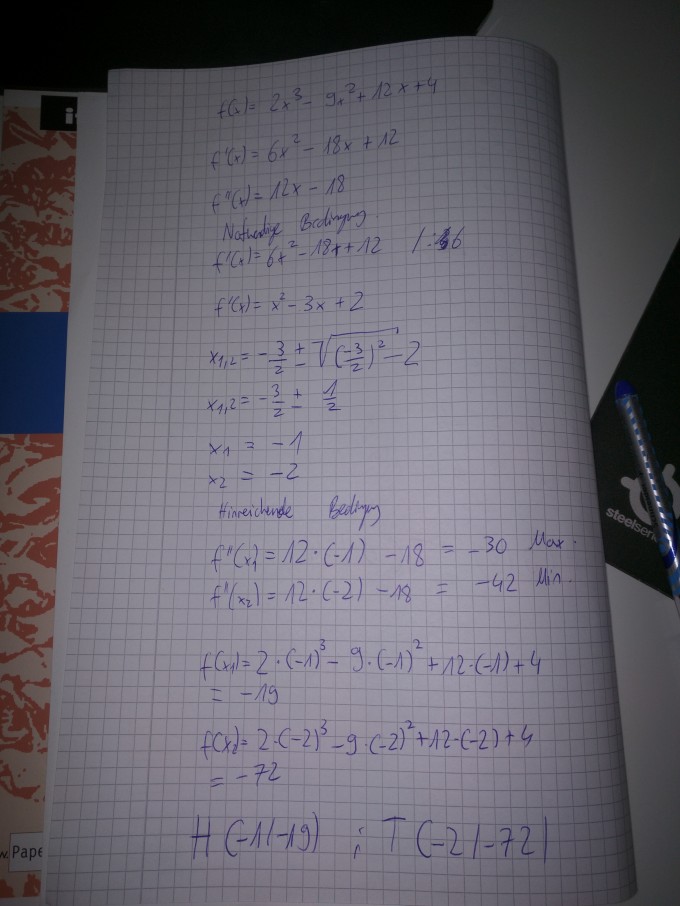 f(x) = 2x³ - 9x² + 12x + 4
f'(x) = 6x² - 18x + 12
f''(x) = 12x - 18
Notwendige Bedingung
f'(x) = 6x² - 18x + 12 / : 6
f'(x) = x² - 3x + 2
x₁,₂ = -3/2 ± √((-3/2)² - 2
x₁,₂ = -3/2 ± 1/2
x₁ = -1
x₂ = -2
Hinreichende Bedingung
f''(x₁) = 12·(-1) - 18 = -30 Max.
f''(x₂) = 12·(-2) - 18 = -42 Min.
f(x₁) = 2·(-1)³ - 9·(-1)² + 12·(-1) + 4
= -19
f(x₂) = 2·(-2)³ - 9·(-2)² + 12·(-2) + 4
= -72
H (-1/-19) ; T (-2/-72)
w. Pape
steelseri